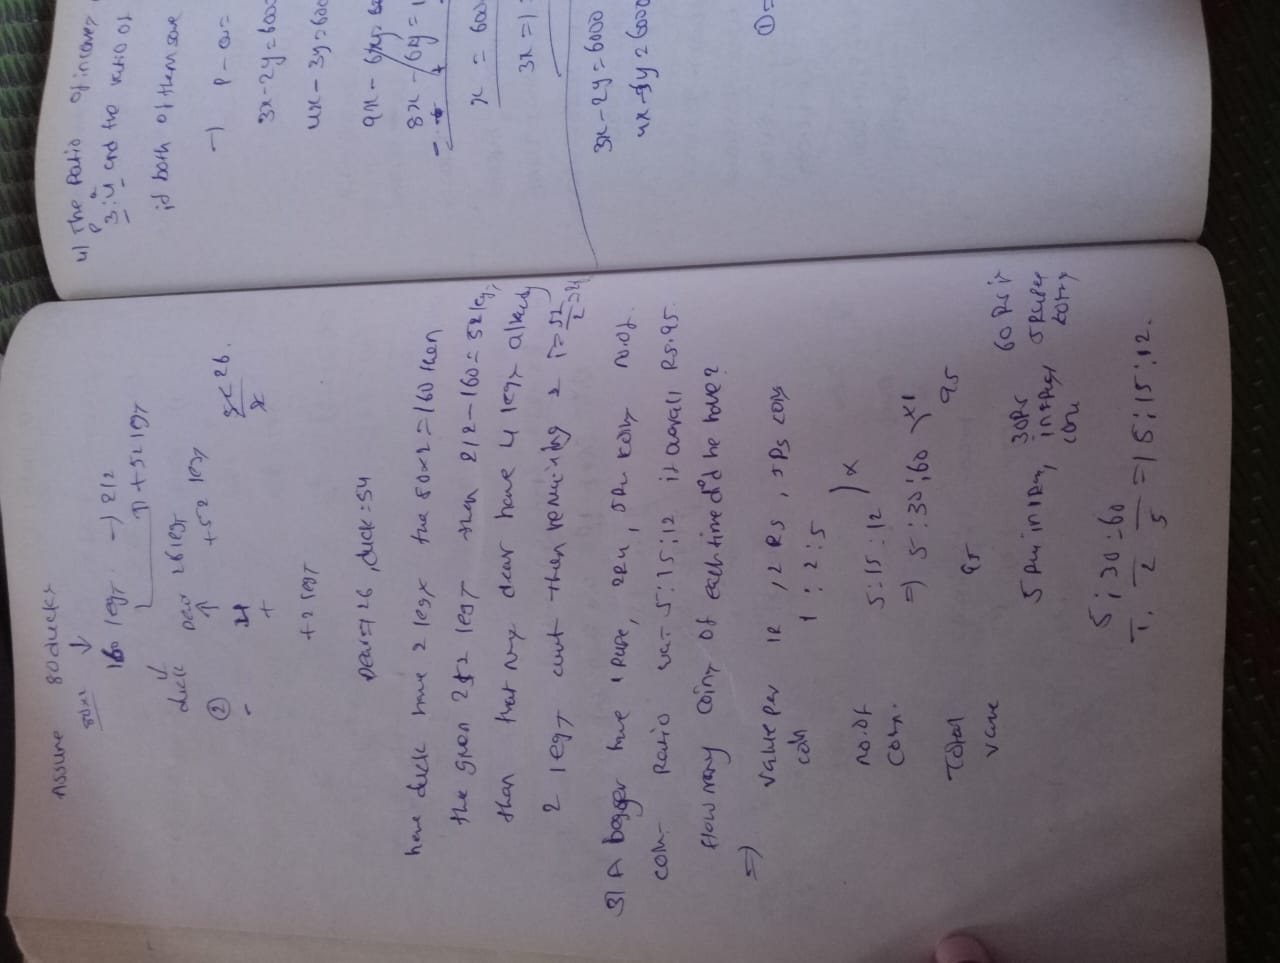 Assume 80 ducks
80x2 ↓
160 legs → 212
+52 legs
duck deer 26 legs
② 4 +52 legs
- +
+2 legs
26
deer = 26, duck = 54
here duck have 2 legs the 80x2=160 then
the given 212 legs then 212-160=52 legs
than that my dear have 4 legs already
2 legs count then remaining 2
3) A begger have 1 rupee, 2Rs, 5Rs coins no.of
coin ratio was 5:15:12 it overall Rs.95.
How many coins of each time did he have?
⇒ value per 1R, 2Rs, 5Rs coins
coin 1 : 2 : 5
no.of 5:15:12 ) x
coin. ⇒ 5:30:60 x1
Total 95 95
value
5 Rs in 1 Rs, 30Rs in 2Rs coin 60 Rs in 5 Rupee coins
5 : 30 : 60
1 2 5 = 5:15:12.
4) The Ratio of income
3:4 and the ratio of
if both of them save
→ P - Q =
3x-2y=6000
4x-3y=600
9x-6y=
8x-6y=1
x = 6000
3x=1
3x-2y=6000
4x-3y=6000
①=